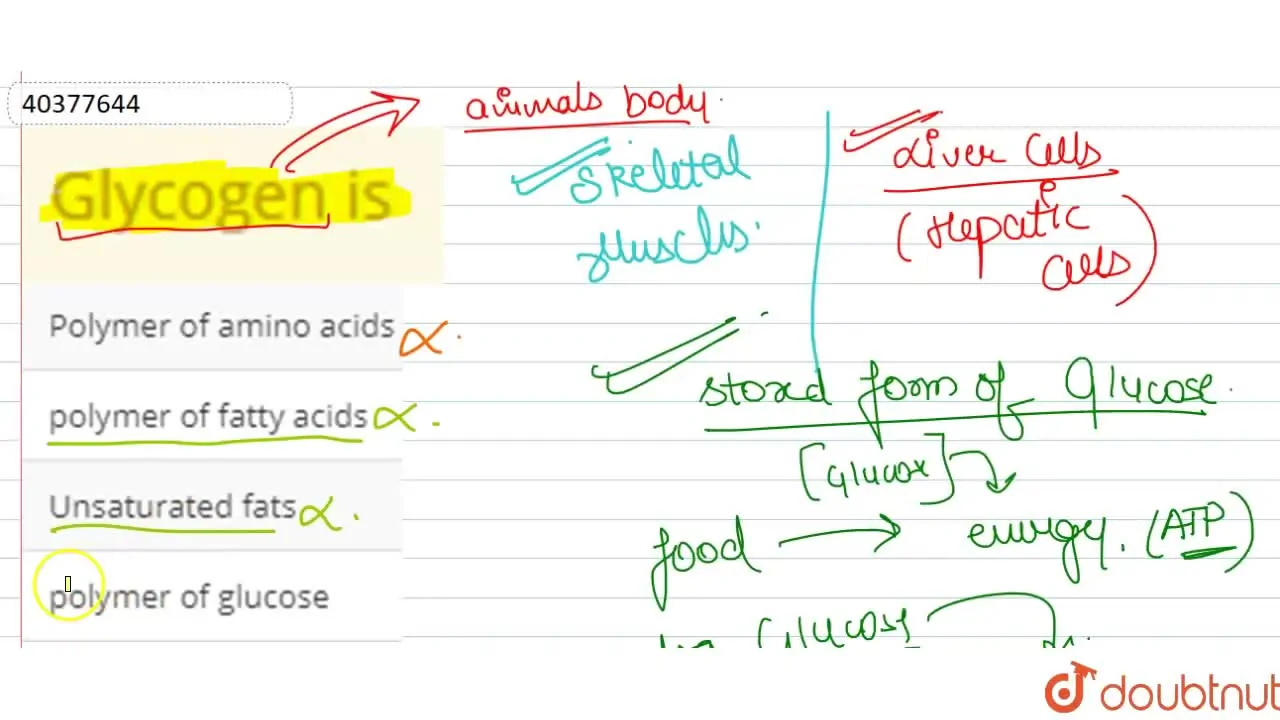 40377644
Glycogen is
Polymer of amino acids
polymer of fatty acids
Unsaturated fats
polymer of glucose
animals body.
Skeletal
Muscles.
Liver Cells
(Hepatic
Cells)
stored form of Glucose.
[Glucose]
food → energy. (ATP)
Glucose
doubtnut